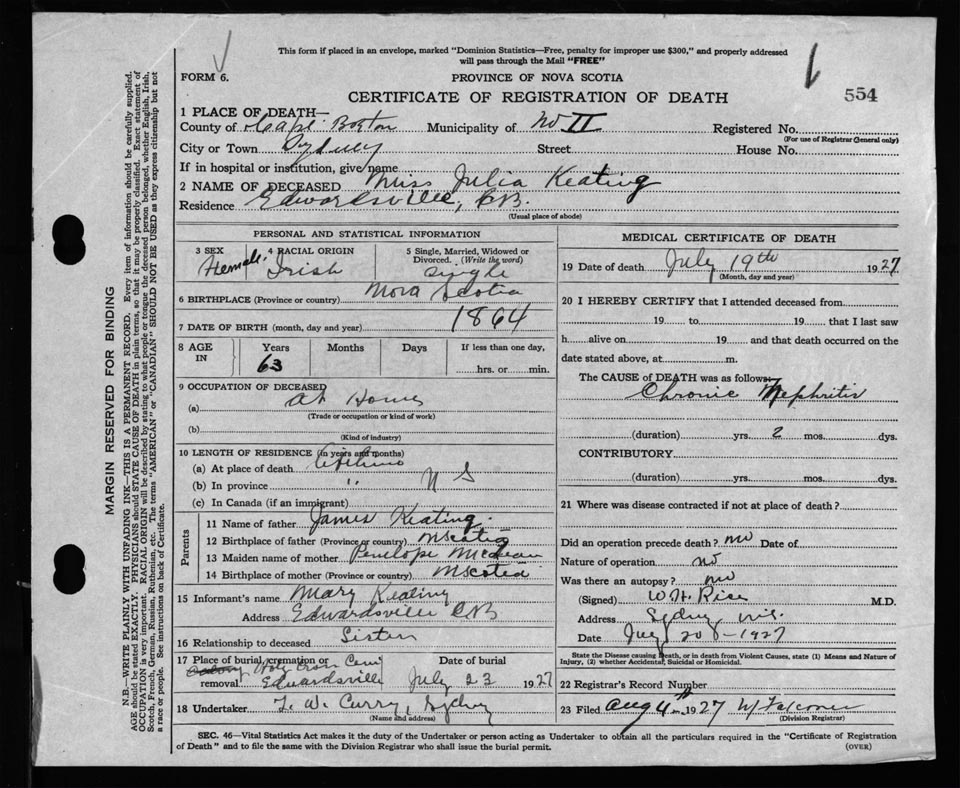 This form if placed in an envelope, marked "Dominion Statistics—Free, penalty for improper use $300," and properly addressed
will pass through the Mail "FREE"
FORM 6.
PROVINCE OF NOVA SCOTIA
CERTIFICATE OF REGISTRATION OF DEATH
554
1 PLACE OF DEATH—
County of Cape Breton Municipality of No II Registered No.
(For use of Registrar General only)
City or Town Sydney Street House No.
If in hospital or institution, give name
2 NAME OF DECEASED Miss Julia Keating
Residence Edwardsville, C.B.
(Usual place of abode)
PERSONAL AND STATISTICAL INFORMATION
3 SEX Female 4 RACIAL ORIGIN Irish 5 Single, Married, Widowed or Divorced. (Write the word) Single
6 BIRTHPLACE (Province or country) Nova Scotia
7 DATE OF BIRTH (month, day and year) 1864
8 AGE IN Years 63 Months Days If less than one day,
hrs. or min.
9 OCCUPATION OF DECEASED
(a) At Home
(Trade or occupation or kind of work)
(b)
(Kind of industry)
10 LENGTH OF RESIDENCE (in years and months)
(a) At place of death
(b) In province " N S
(c) In Canada (if an immigrant)
Parents
11 Name of father James Keating
12 Birthplace of father (Province or country) N Scotia
13 Maiden name of mother Penelope McLean
14 Birthplace of mother (Province or country) N Scotia
15 Informant's name Mary Keating
Address Edwardsville C.B
16 Relationship to deceased Sister
17 Place of burial, cremation or
removal Edwardsville
Date of burial
July 23 1927
18 Undertaker T. W. Curry, Sydney
(Name and address)
MEDICAL CERTIFICATE OF DEATH
19 Date of death July 19th 1927
(Month, day and year)
20 I HEREBY CERTIFY that I attended deceased from
19 to 19 that I last saw
h alive on 19 and that death occurred on the
date stated above, at m.
The CAUSE of DEATH was as follows:
Chronic Nephritis
(duration) yrs. 2 mos. dys.
CONTRIBUTORY
(duration) yrs. mos. dys.
21 Where was disease contracted if not at place of death?
Did an operation precede death? no Date of
Nature of operation no
Was there an autopsy? no
(Signed) W. H. Rice M.D.
Address Sydney N.S.
Date July 20 - 1927
State the Disease causing Death, or in death from Violent Causes, state (1) Means and Nature of
Injury, (2) whether Accidental, Suicidal or Homicidal.
22 Registrar's Record Number
23 Filed Aug 4th 1927 W Falconer
(Division Registrar)
SEC. 46—Vital Statistics Act makes it the duty of the Undertaker or person acting as Undertaker to obtain all the particulars required in the "Certificate of Registration
of Death" and to file the same with the Division Registrar who shall issue the burial permit.
(OVER)
MARGIN RESERVED FOR BINDING
N.B.—WRITE PLAINLY WITH UNFADING INK—THIS IS A PERMANENT RECORD. Every item of information should be carefully supplied.
AGE should be stated EXACTLY. PHYSICIANS should STATE CAUSE OF DEATH in plain terms, so that it may be properly classified. Exact statement of
OCCUPATION is very important. RACIAL ORIGIN will be described by stating to what people or tongue the deceased person belonged, whether English, Irish,
Scotch, French, German, Russian, Ruthenian, etc. The terms "AMERICAN" or "CANADIAN" SHOULD NOT BE USED as they express citizenship but not
a race or people. See instructions on back of Certificate.